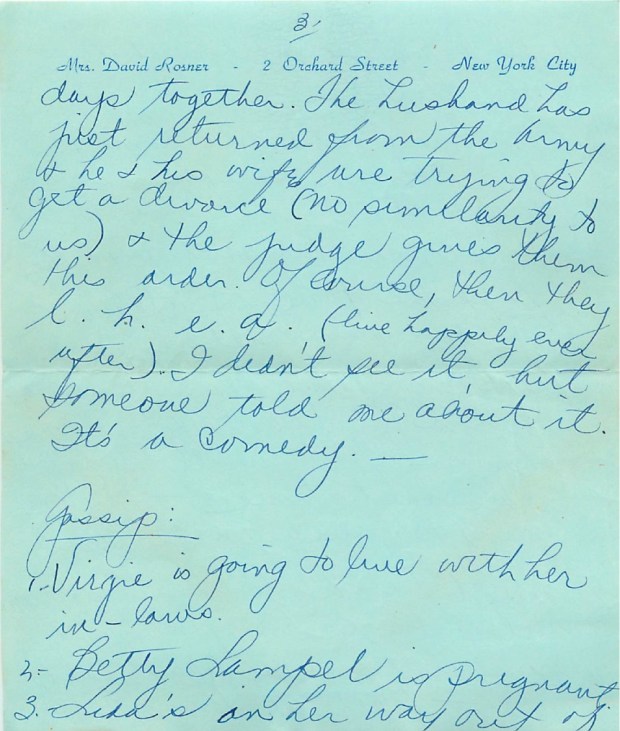 3.
Mrs. David Rosner - 2 Orchard Street - New York City
days together. The husband has
just returned from the Army
& he & his wife are trying to
get a divorce (no similarity to
us) & the judge gives them
this order. Of course, then they
l. h. e. a. (live happily ever
after). I didn't see it, but
someone told me about it.
It's a comedy. —
Gossip:
1. Virgie is going to live with her
in-laws.
2. - Betty Lampel is pregnant
3. on her way out of